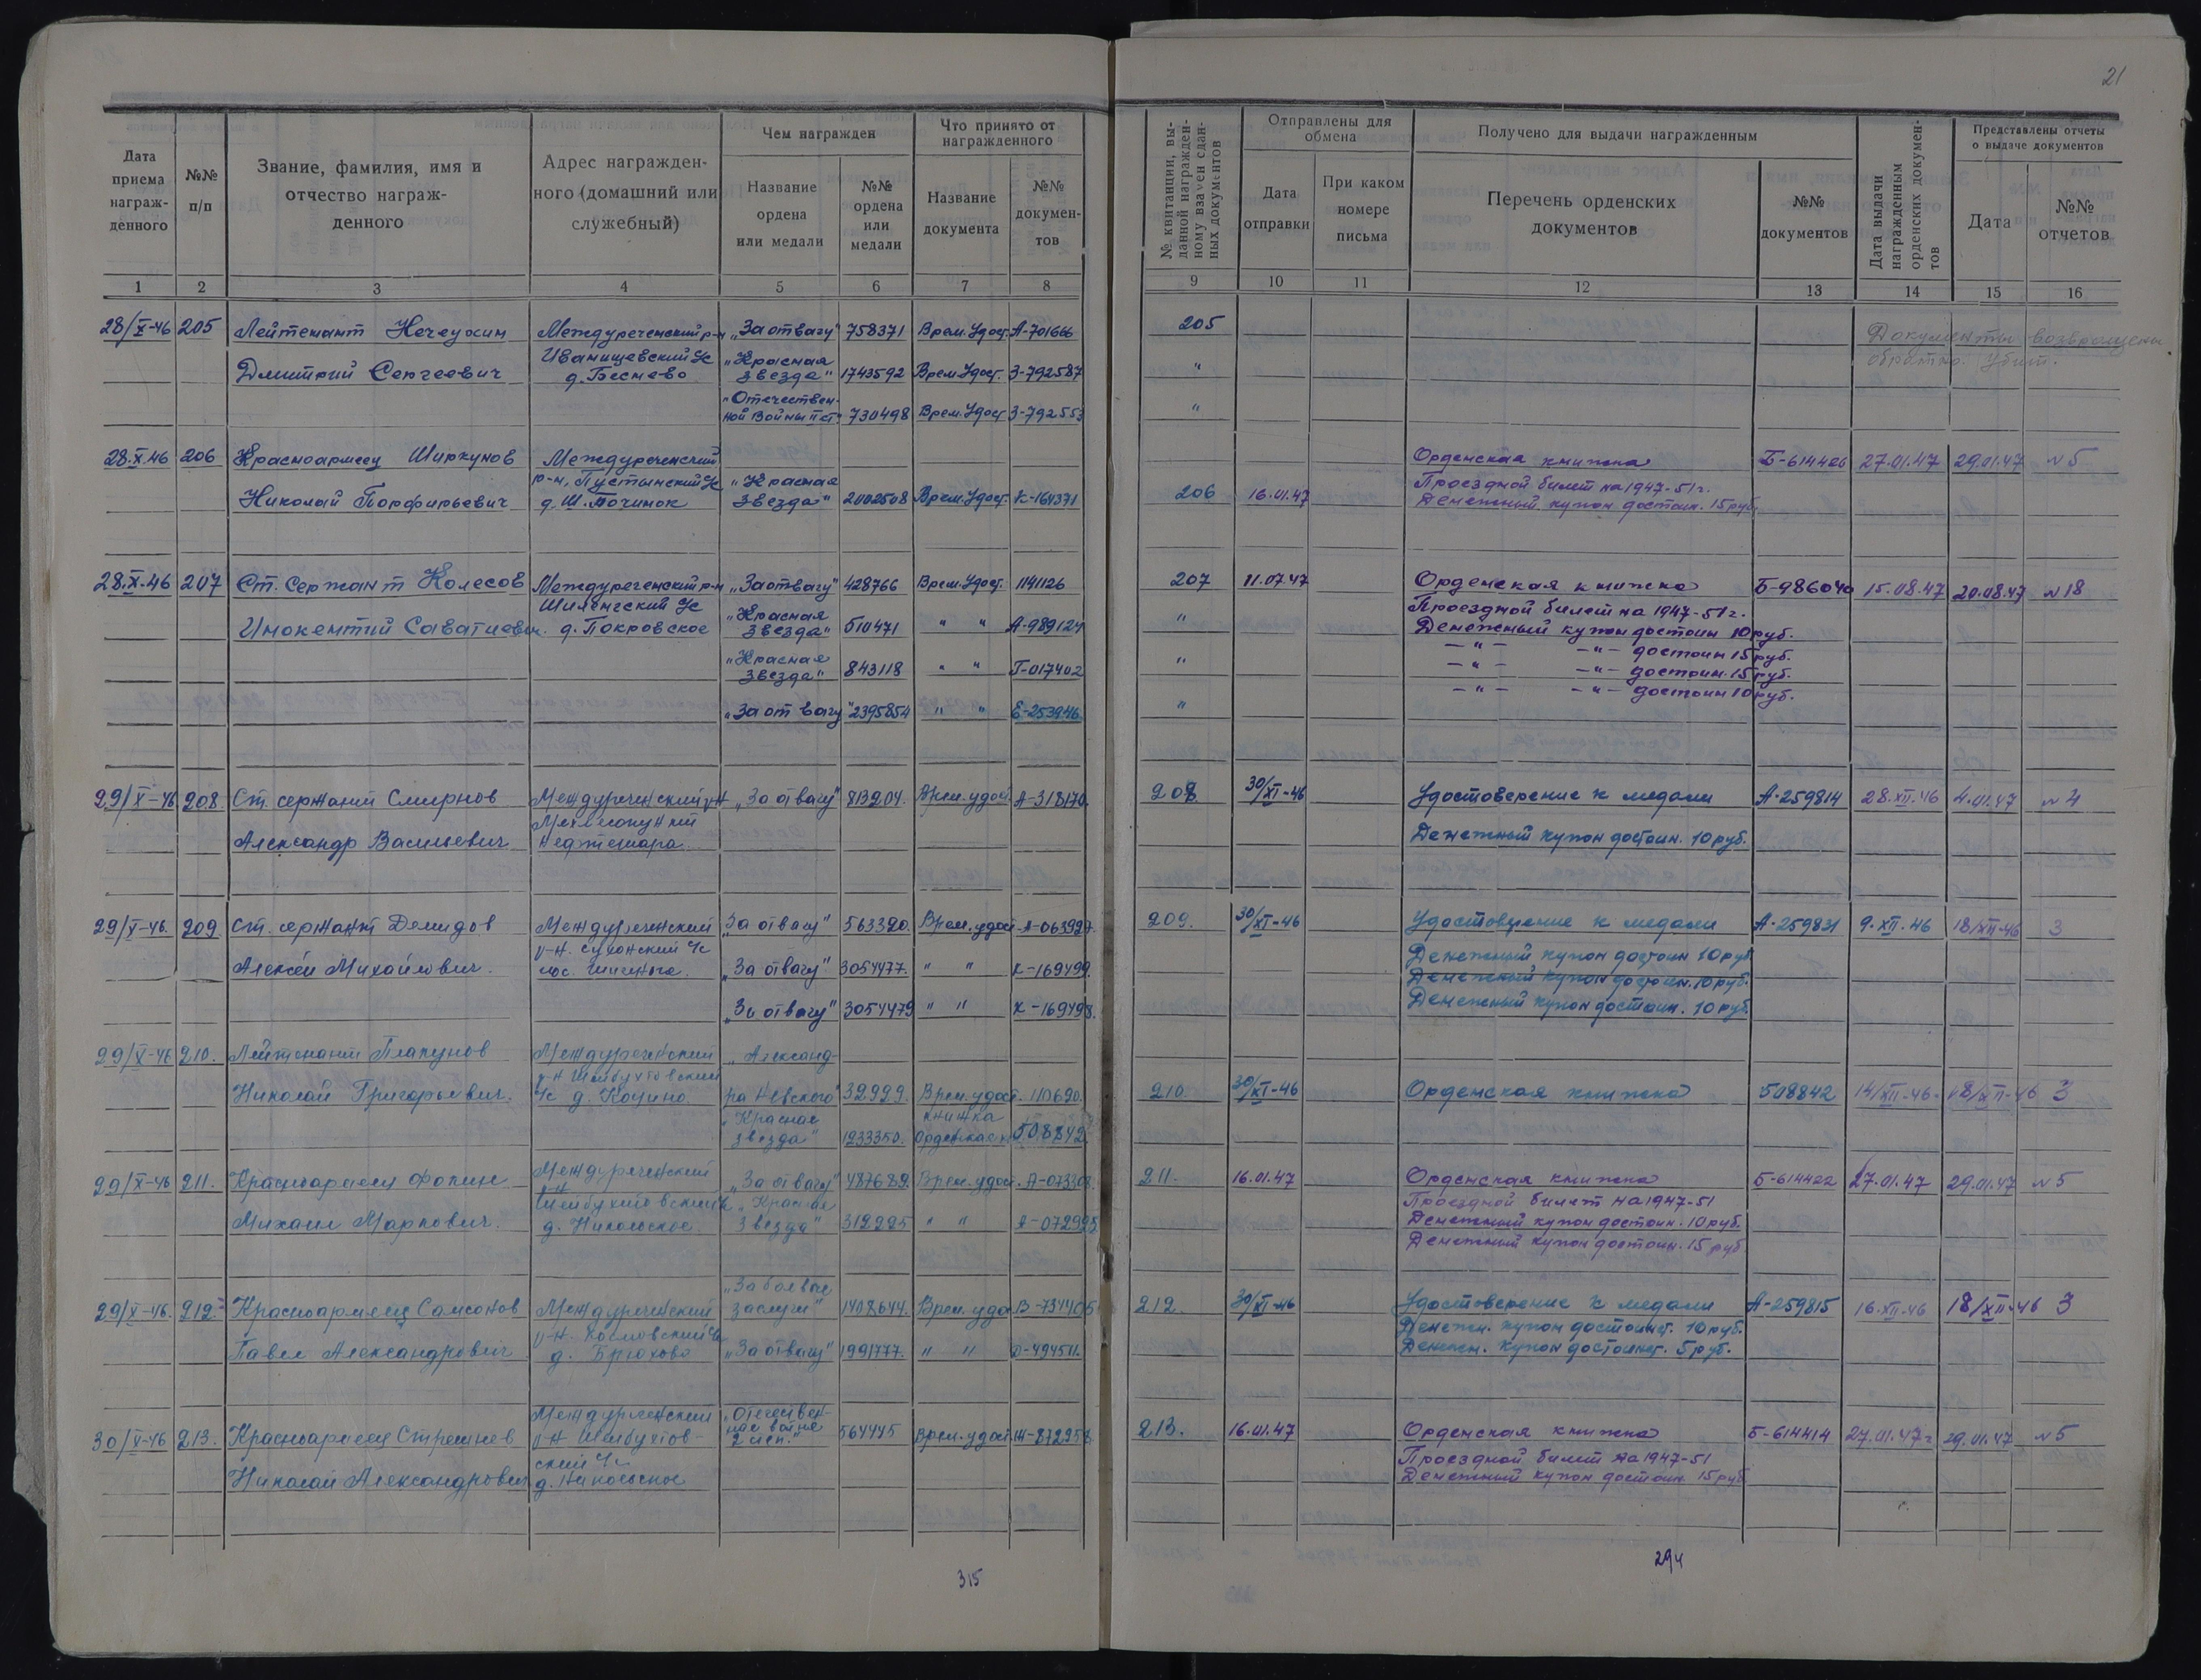 21
Чем награжден
Что принято от награжденного
Дата приема награж-денного
№№ п/п
Звание, фамилия, имя и отчество награж-денного
Адрес награжден-ного (домашний или служебный)
Название ордена или медали
№№ ордена или медали
Название документа
№№ докумен-тов
№ квитанции, вы-данной награжден-ному взамен сдан-ных документов
Отправлены для обмена
Дата отправки
При каком номере письма
Получено для выдачи награжденным
Перечень орденских документов
№№ документов
Дата выдачи награжденным орденских докумен-тов
Представлены отчеты о выдаче документов
Дата
№№ отчетов
1 2 3 4 5 6 7 8 9 10 11 12 13 14 15 16
28/X-46 205 Лейтенант Междуреченский р-н „За отвагу" 758371 Врем. Удост. А-701666 205 Документы возвращены
Иванищевский с/с „Красная обратно. Убит.
Дмитрий Сергеевич д. звезда" 1743592 Врем. Удост. З-792587 "
„Отечествен-
ной Войны II ст." 730498 Врем. Удост. З-792553 "
28.X.46 206 Красноармеец Ширкунов Междуреченский Орденская книжка Б-614426 27.01.47 29.01.47 №5
р-н, Пустынский с/с „Красная Проездной билет на 1947-51г.
Николай Порфирьевич д. Ш. Починок звезда" 2002508 Врем. Удост. К-164371 206 16.01.47 Денежный купон достоин. 15 руб.
28.X-46 207 Ст. Сержант Колесов Междуреченский р-н „За отвагу" 428766 Врем. Удост. 1141126 207 11.07.47 Орденская книжка Б-986040 15.08.47 20.08.47 №18
Шиленгский с/с „Красная Проездной билет на 1947-51г.
Инокентий Саватиевич. д. Покровское звезда" 510471 " " А-989124 " Денежный купон достоин 10 руб.
-"- -"- достоин 15 руб.
„Красная звезда" 843118 " " Г-017402 " -"- -"- достоин. 15 руб.
-"- -"- достоин 10 руб.
„За отвагу" 2395854 " " Е-253946 "
29/X-46 208 Ст. сержант Смирнов Междуреченский р-н „За отвагу" 813204. Врем. удост. А-318170. 208 30/XI-46 Удостоверение к медали А-259814 28.XII.46 4.01.47 №4
Мехлесопункт
Александр Васильевич Денежный купон достоин. 10 руб.
29/X-46. 209 Ст. сержант Демидов Междуреченский „За отвагу" 563320. Врем. удост. 209. 30/XI-46 Удостоверение к медали А-259831 9.XII.46 18/XII-46 3
р-н. Сухонский с/с Денежный купон достоин 10 руб.
Алексей Михайлович. пос. „За отвагу" 3054477. " " К-169499. Денежный купон достоин. 10 руб.
„За отвагу" 3054479 " " К-169498. Денежный купон достоин. 10 руб.
29/X-46 210. Лейтенант Плакунов Междуреченский „Александ-
р-н Шейбухтовский
Николай Григорьевич. с/с д. ра Невского" 32999. Врем. удост. 110690. 210 30/XI-46 Орденская книжка 508842 14/XII-46. 18/XII-46 3
„Красная книжка
звезда" 1233350. Орденская 508842
29/X-46 211. Красноармеец Фокин Междуреченский „За отвагу" 487689. Врем. удост. 211. 16.01.47 Орденская книжка Б-614422 27.01.47 29.01.47 №5
р-н Шейбухтовский с/с „Красная Проездной билет на 1947-51
Михаил Маркович. д. Никольское. звезда" 312225 " " А-072995 Денежный купон достоин. 10 руб.
Денежный купон достоин. 15 руб.
„За боевые
29/X-46. 212. Красноармеец Самсонов Междуреченский заслуги" 1408644. Врем. удо В-734405 212. 30/XI-46 Удостоверение к медали А-259815 16.XII.46 18/XII-46 3
р-н. с/с Денежн. купон достоинст. 10 руб.
Павел Александрович д. Брюхово „За отвагу" 1991777. " " Денежн. купон достоинст. 5 руб.
Междуреченский „Отечествен-
30/X-46 213. Красноармеец Стрешнев р-н Шейбухтов- ная война 2 степ." 564445 Врем. удост. 213. 16.01.47 Орденская книжка Б-614414 27.01.47г 29.01.47 №5
ский с/с Проездной билет на 1947-51
Николай Александрович д. Никольское Денежный купон достоин 15 руб
315
294